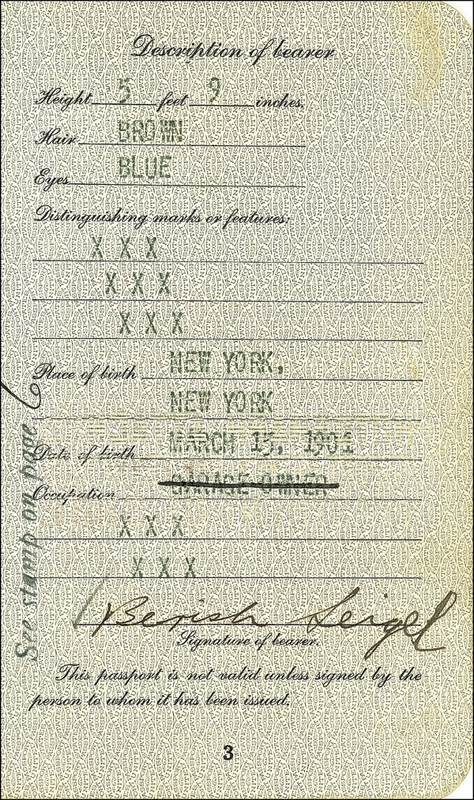 Description of bearer
Height 5 feet 9 inches.
Hair BROWN
Eyes BLUE
Distinguishing marks or features:
X X X
X X X
X X X
Place of birth NEW YORK,
NEW YORK
Date of birth MARCH 15, 1901
Occupation GARAGE OWNER
X X X
X X X
Berish Seigel
Signature of bearer.
This passport is not valid unless signed by the
person to whom it has been issued.
3
See stamp on page 6